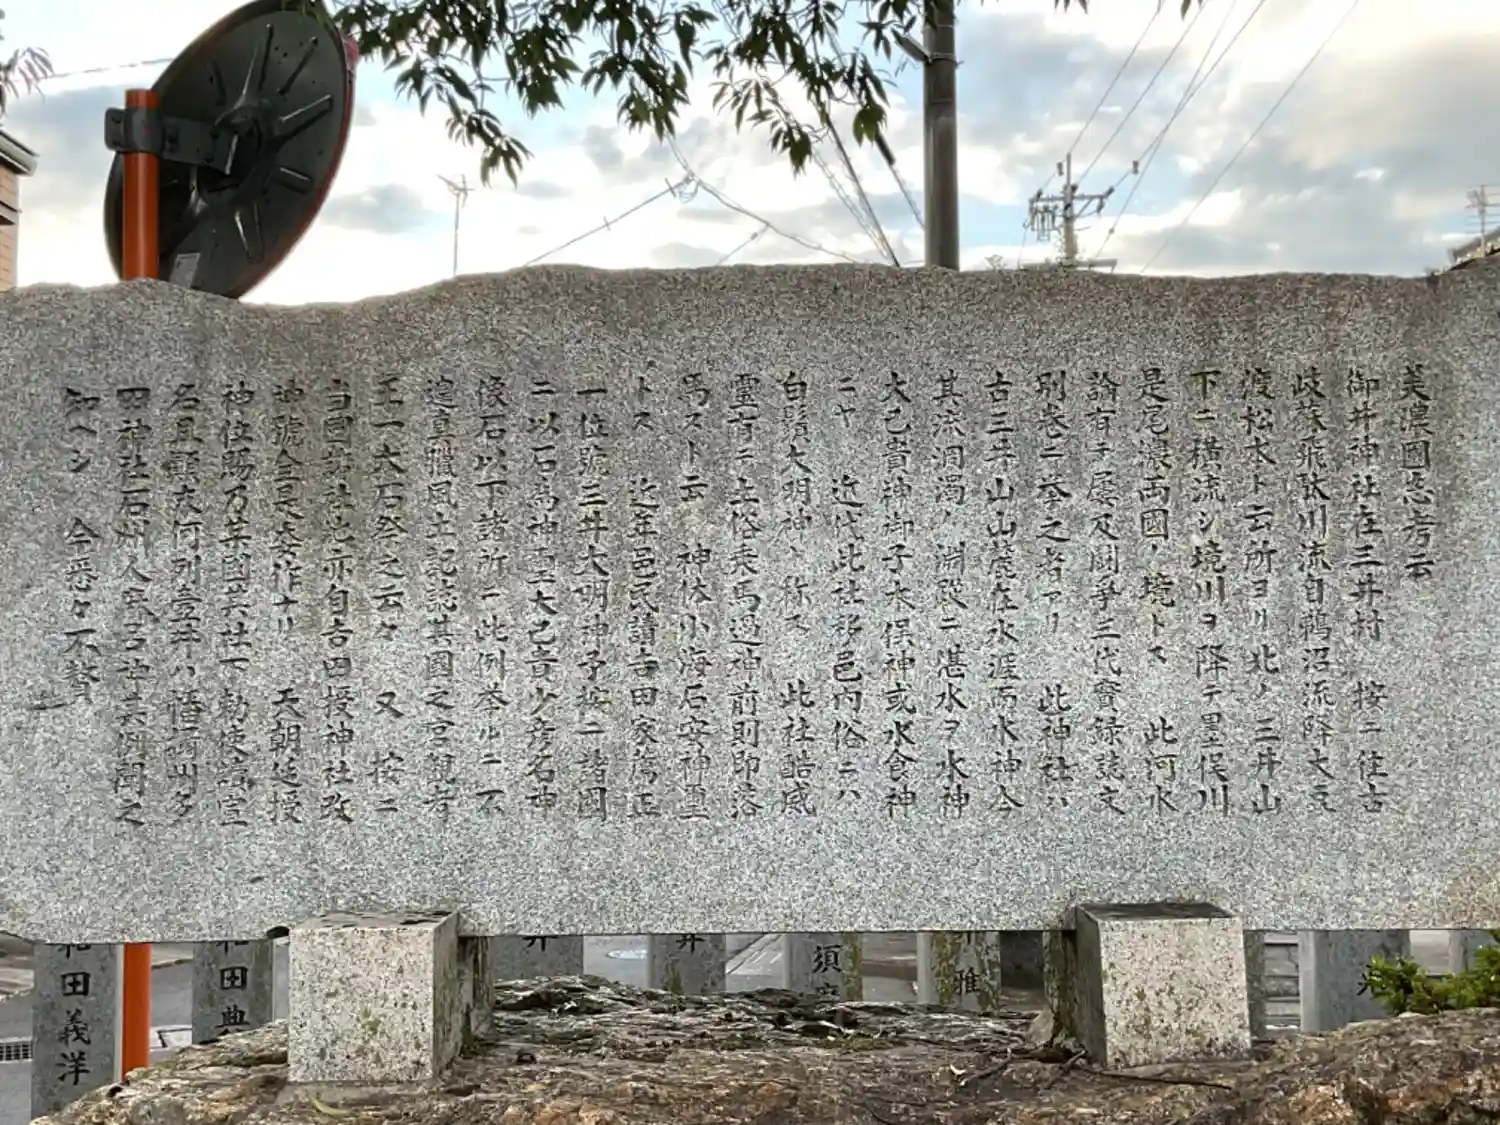 美濃國志考云
御井神社在三井村 按ニ往古
岐蘇飛騨川流自鵜沼流降大豆
渡松本ト云所ヨリ北ノ三井山
下ニ横流シ境川ヲ降テ墨俣川
是尾濃両國ノ境トス 此河水
論有テ屡及闘爭三代實録誌文
別巻ニ挙之者ナリ 此神社ハ
古三井山山麓在水涯而水神今
其流涸濁ノ淵裂ニ湛水ヲ水神
大己貴神御子木俣神或水食神
ニヤ 近代此社移邑内俗ニハ
白鬚大明神ト称ス 此社酷威
靈有ニ土俗乗馬過神前則即落
馬スト云 神体小海石安神璽
トス 近年邑民請吉田家蔿正
一位號三井大明神予按ニ諸國
ニ以石為神璽大己貴少彦名神
像石以下諸所ニ此例挙ルニ不
遑真臘風土記誌其國之宮観有
王一大石祭之云々 又 按ニ
当國諸社也亦自吉田授神社改
神號全是妄作ナリ 天朝廷授
神位賜乃某國某社下勅使讀宣
名且顯大何列壹井ハ播州多
田神社石州人丸其例聞之
知ヘシ 今悉々不贅
和田義洋
和田典
井
井
須
雅